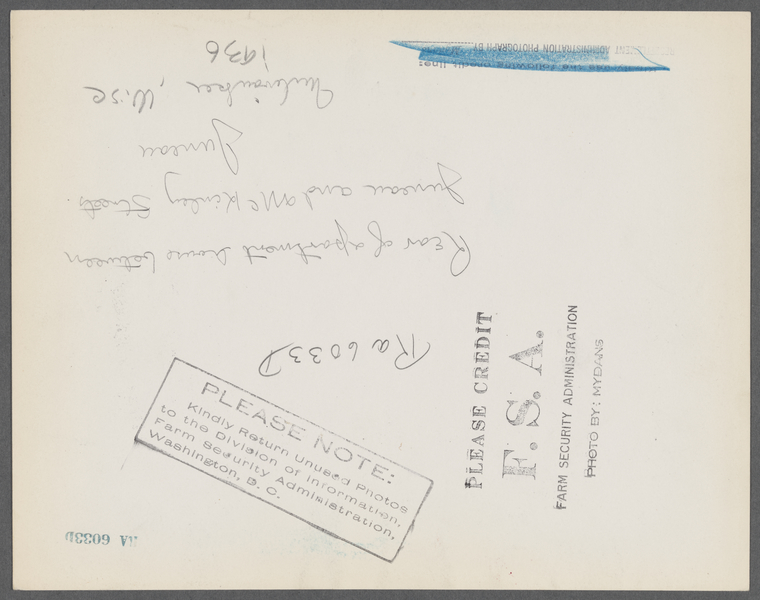 Ra 6033D
Rear of apartment house between
Juneau and McKinley Streets.
Juneau
Milwaukee, Wisc
1936
PLEASE CREDIT
F. S. A.
FARM SECURITY ADMINISTRATION
PHOTO BY: MYDANS
PLEASE NOTE:
Kindly Return Unused Photos
to the Division of Information,
Farm Security Administration,
Washington, D. C.
RA 6033D
credit line:
ADMINISTRATION PHOTOGRAPH BY